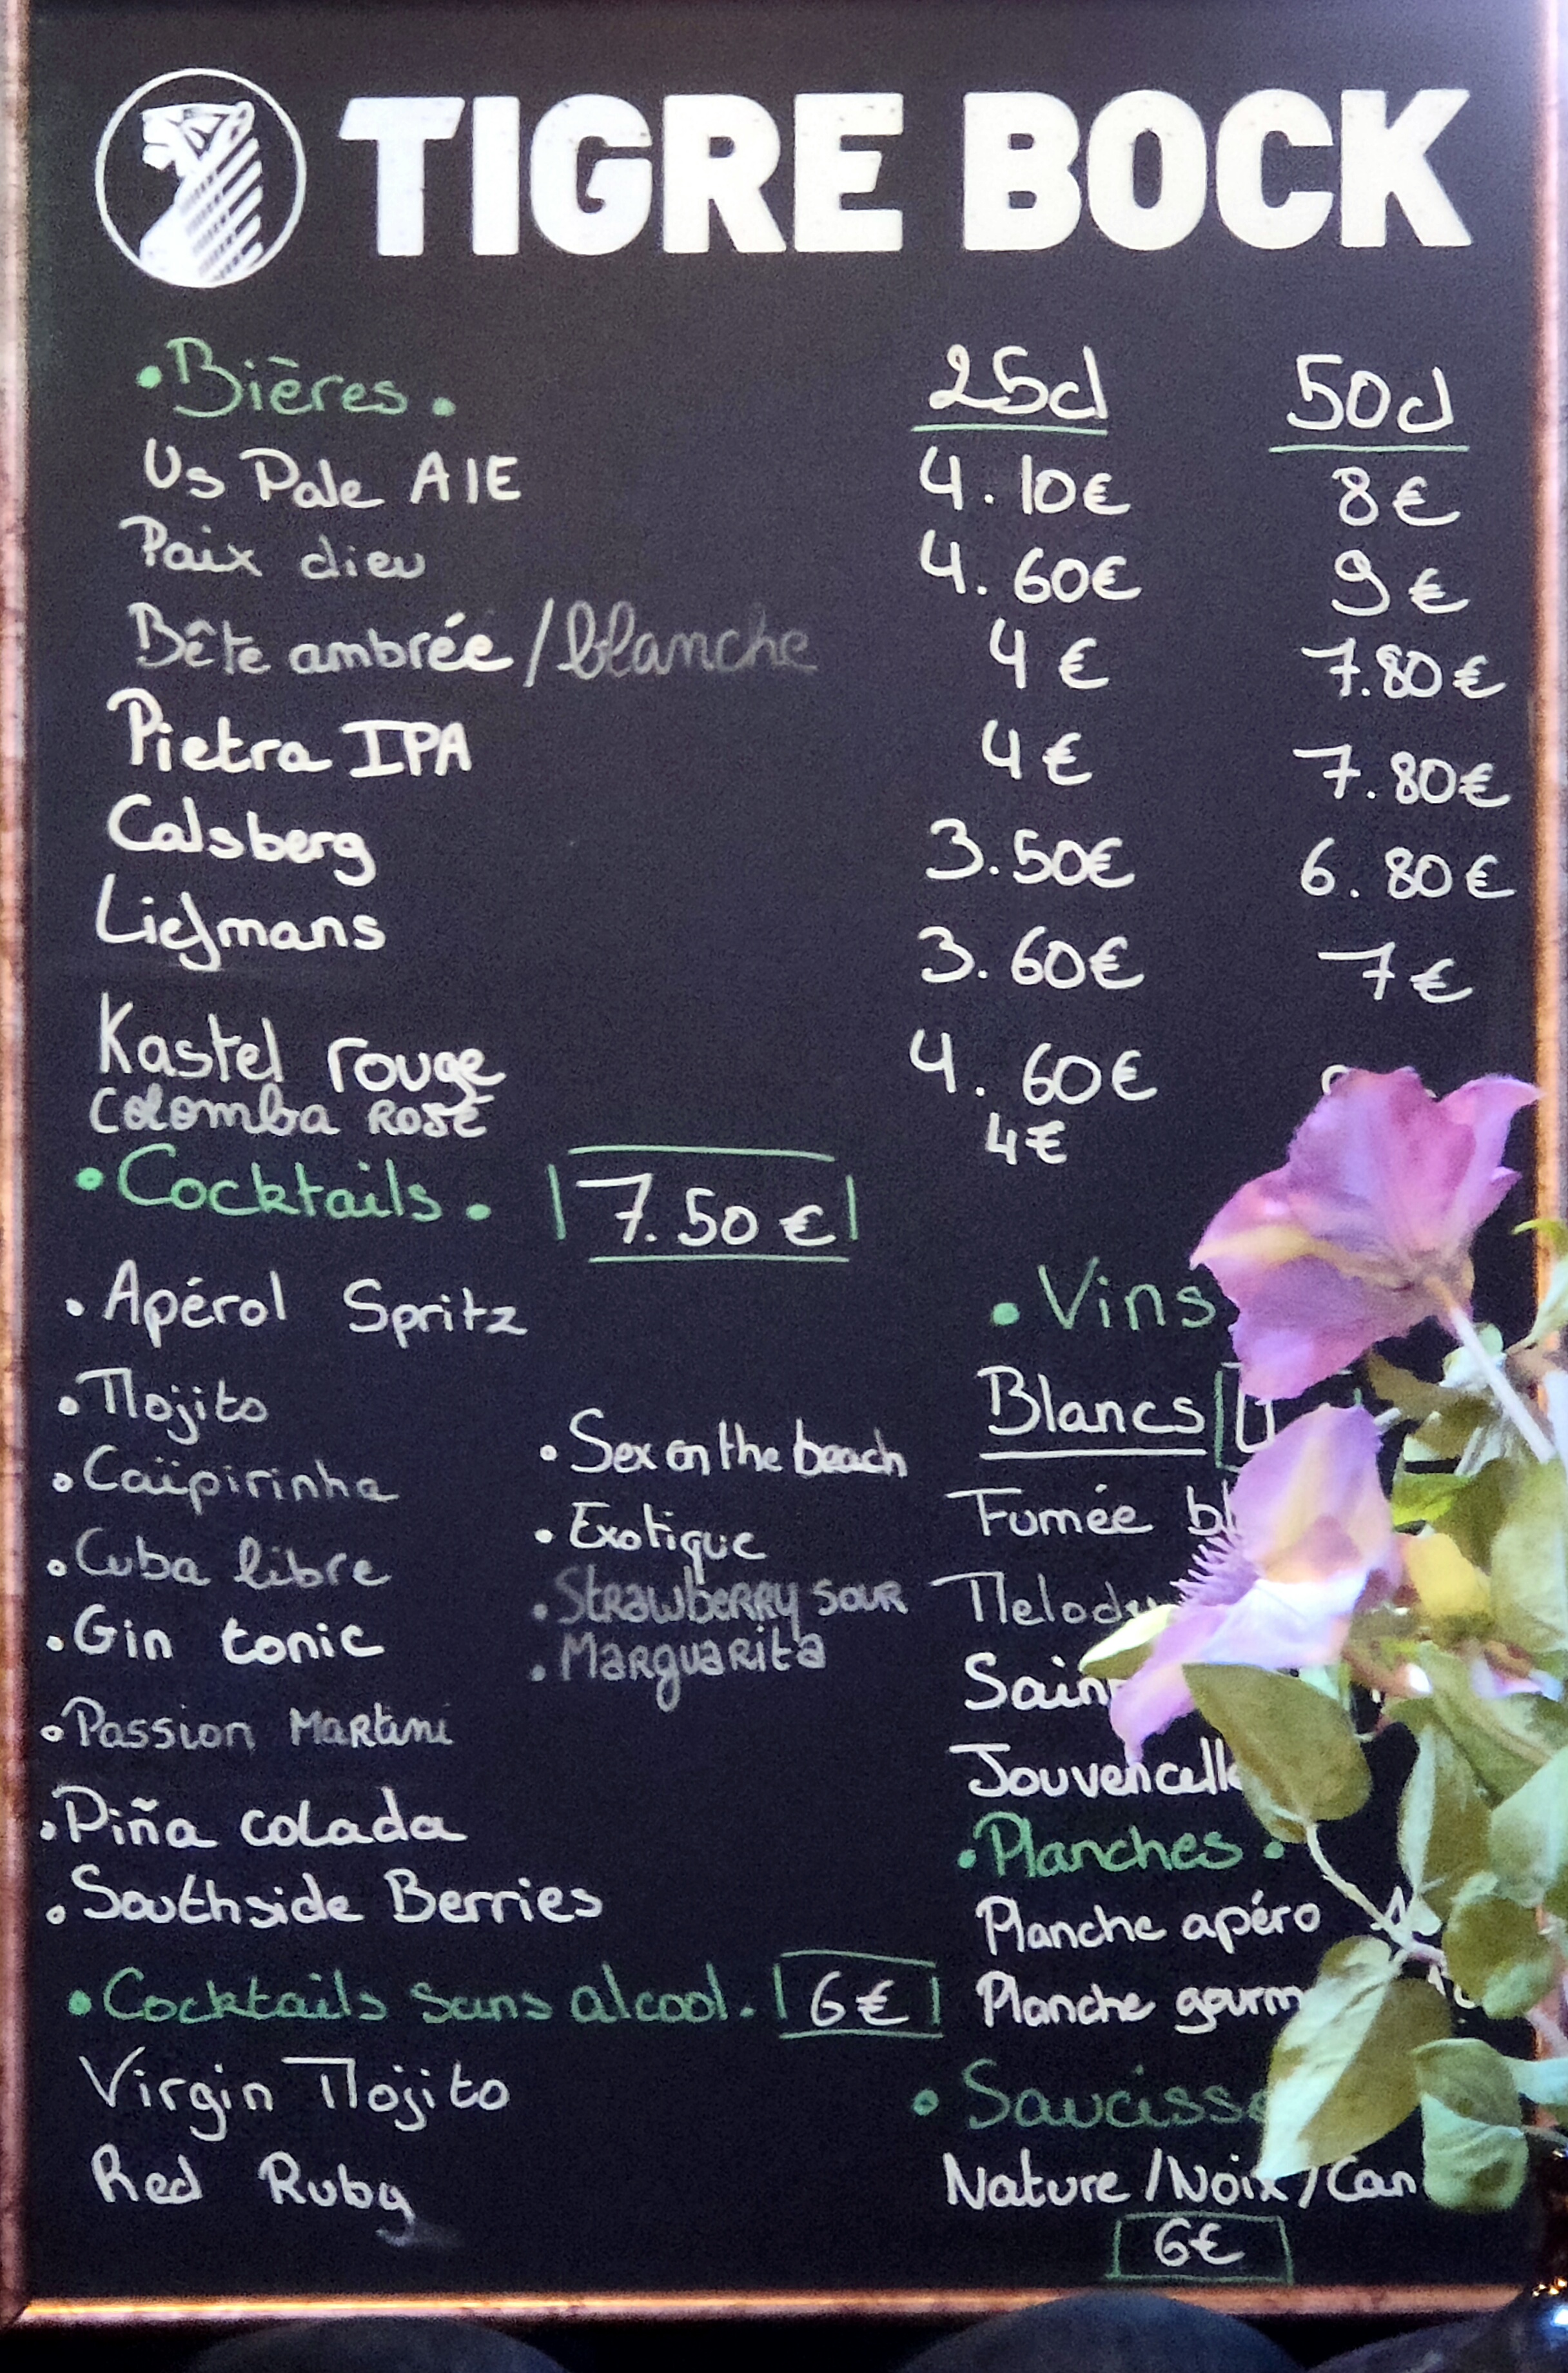 TIGRE BOCK
• Bières . 25cl 50cl
Us Pale AlE 4.10€ 8€
Paix dieu 4.60€ 9€
Bête ambrée / blanche 4€ 7.80€
Pietra IPA 4€ 7.80€
Calsberg 3.50€ 6.80€
Liefmans 3.60€ 7€
Kastel rouge 4.60€
Colomba ROSÉ 4€
• Cocktails . 7.50€
• Apérol Spritz
• Mojito
• Caïpirinha
• Cuba libre
• Gin tonic
• Passion Martini
• Piña colada
• Southside Berries
• Sex on the beach
• Exotique
• Strawberry sour
• Marguarita
• Cocktails sans alcool . 6€
Virgin Mojito
Red Ruby
• Vins
Blancs
Fumée
Jouvencelle
• Planches •
Planche apéro
Planche
•
Nature / Noix /
6€